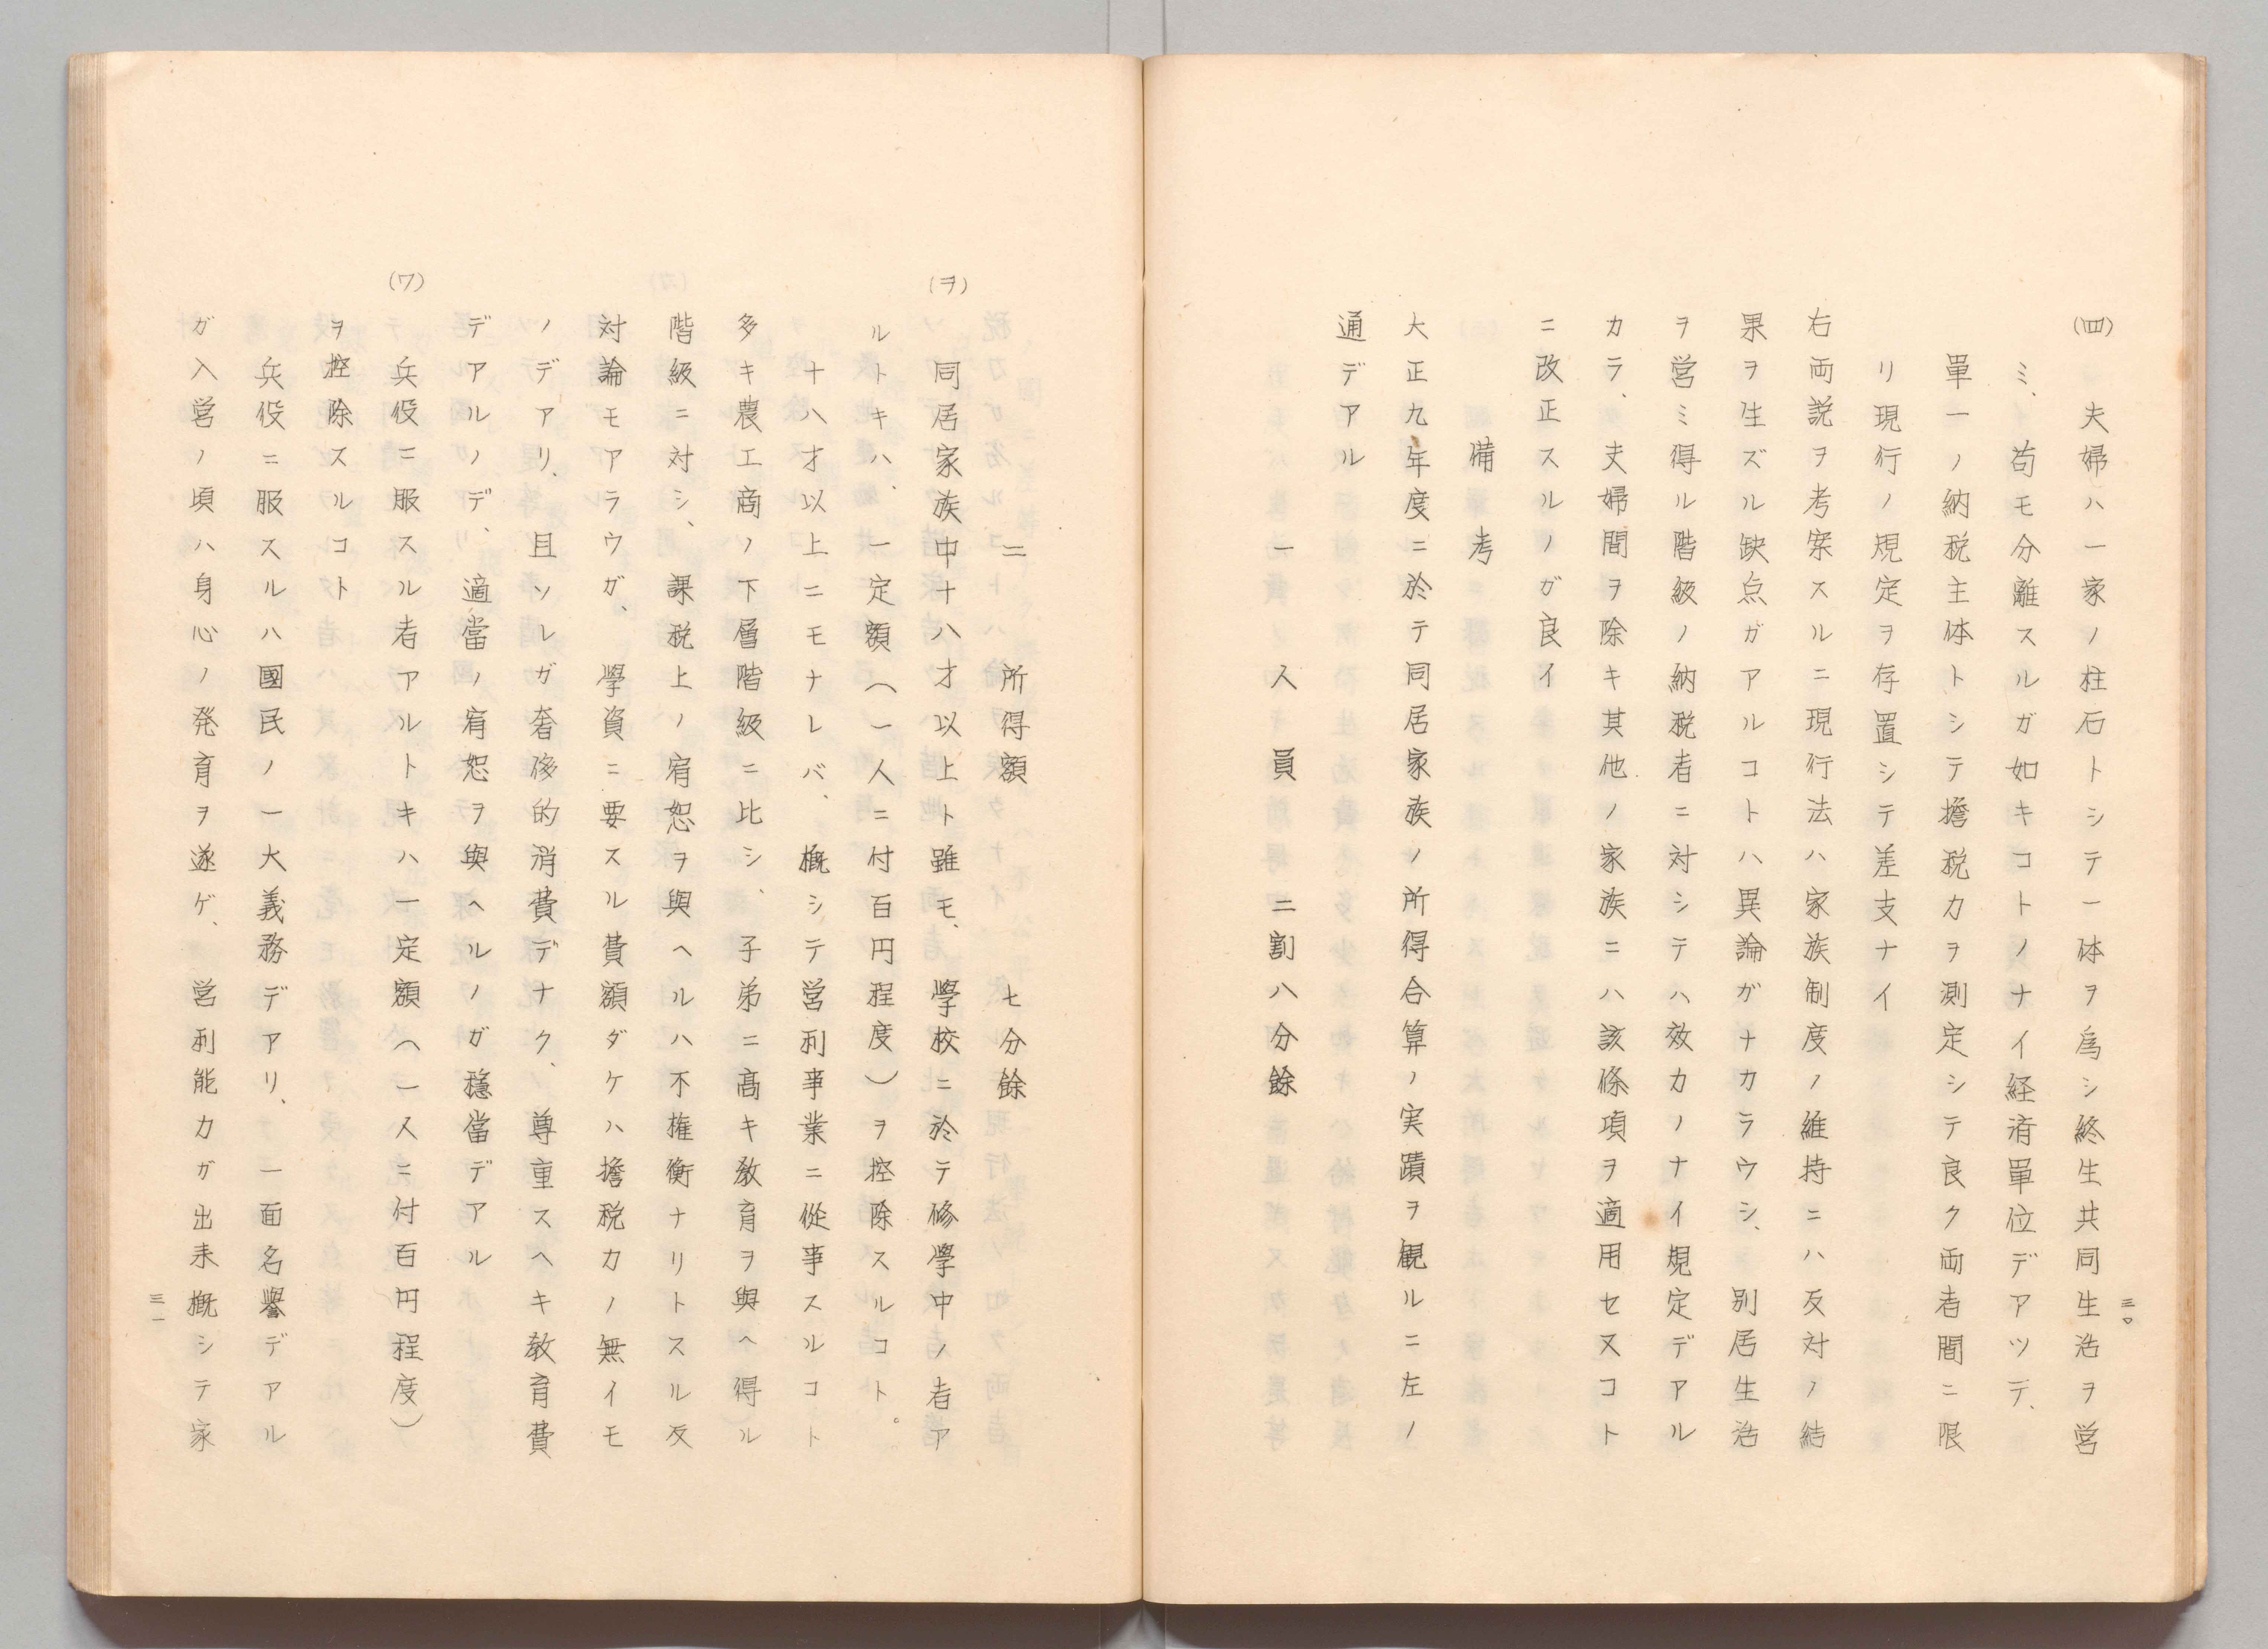 三〇
(四) 夫婦ハ一家ノ柱石トシテ一体ヲ為シ終生共同生活ヲ営
ミ、苟モ分離スルガ如キコトノナイ経済単位デアツデ、
単一ノ納税主体トシテ擔税力ヲ測定シテ良ク両者間ニ限
リ現行ノ規定ヲ存置シテ差支ナイ
右両説ヲ考案スルニ現行法ハ家族制度ノ維持ニハ反対ノ結
果ヲ生ズル缺点ガアルコトハ異論ガナカラウシ、別居生活
ヲ営ミ得ル階級ノ納税者ニ対シテハ效力ノナイ規定デアル
カラ、夫婦間ヲ除キ其他ノ家族ニハ該條項ヲ適用セヌコト
ニ改正スルノガ良イ
備考
大正九年度ニ於テ同居家族ノ所得合算ノ実蹟ヲ観ルニ左ノ
通デアル
一 人員 二割八分餘
二 所得額 七分餘
(ヲ) 同居家族中十八才以上ト雖モ、學校ニ於テ修學中ノ者ア
ルトキハ、一定額(一人ニ付百円程度)ヲ控除スルコト。
十八才以上ニモナレバ、概シテ営利事業ニ從事スルコト
多キ農工商ノ下層階級ニ比シ、子弟ニ高キ教育ヲ與ヘ得ル
階級ニ対シ、課税上ノ宥恕ヲ與ヘルハ不権衡ナリトスル反
対論モアラウガ、學資ニ要スル費額ダケハ擔税力ノ無イモ
ノデアリ、且ソレガ奢侈的消費デナク、尊重スヘキ教育費
デアルノデ、適當ノ宥恕ヲ與ヘルノガ穏當デアル
(ワ) 兵役ニ服スル者アルトキハ一定額(一人ニ付百円程度)
ヲ控除スルコト
兵役ニ服スルハ國民ノ一大義務デアリ、一面名譽デアル
ガ入営ノ頃ハ身心ノ発育ヲ遂ゲ、営利能力ガ出来概シテ家
三一